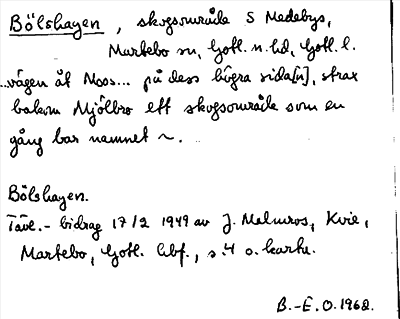 Bölshagen, skogsområde S Medebys,
Martebo sn, Gotl. n. hd, Gotl. l.
...vägen åt Moss... på dess högra sida[n], strax
bakom Mjölbro ett skogsområde som en
gång bar namnet ~.
Bölshagen.
Täv.-bidrag 17/2 1949 av J. Malmros, Kvie,
Martebo, Gotl. lbf., s. 4 o. karta.
B.-E.O. 1962.